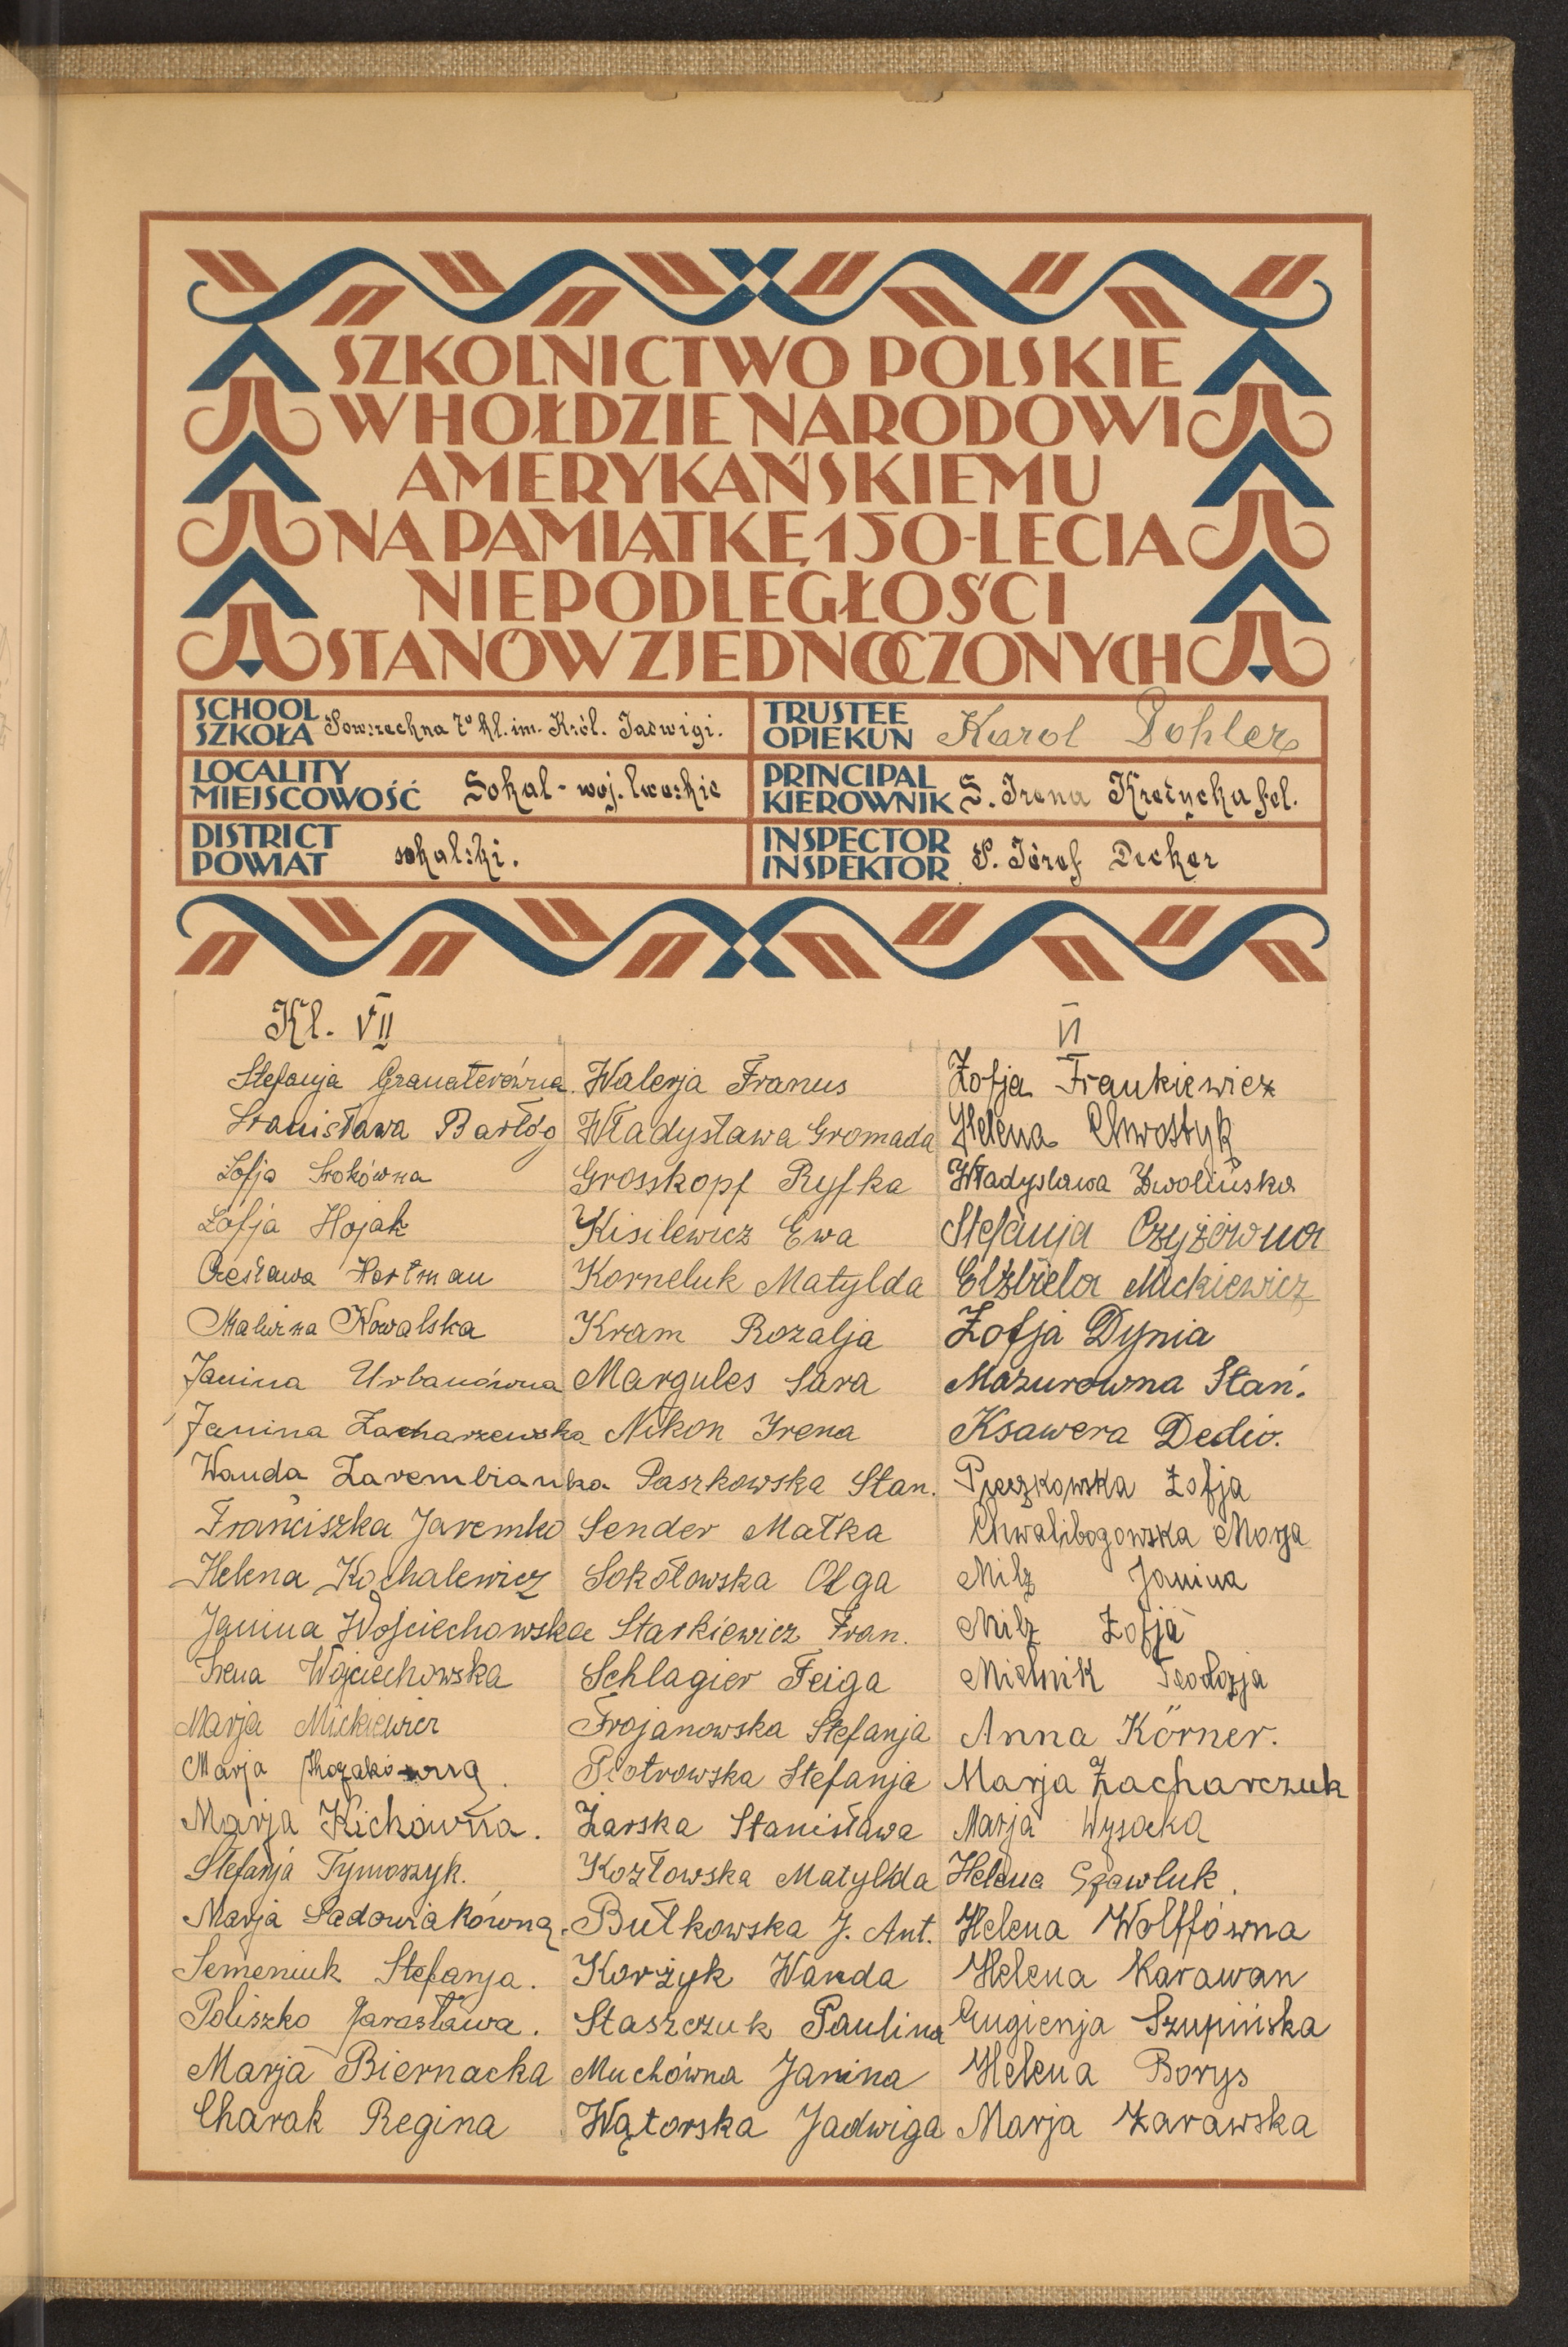 SZKOLNICTWO POLSKIE
W HOŁDZIE NARODOWI
AMERYKAŃSKIEMU
NA PAMIĄTKĘ 150-LECIA
NIEPODLEGŁOŚCI
STANÓW ZJEDNOCZONYCH
SCHOOL
SZKOŁA Powszechna 7º kl. im. Król. Jadwigi.
TRUSTEE
OPIEKUN Karol Pohler
LOCALITY
MIEJSCOWOŚĆ Sokal - woj. lwowskie
PRINCIPAL
KIEROWNIK S. Irena Krzeżycka fel.
DISTRICT
POWIAT sokalski.
INSPECTOR
INSPEKTOR P. Józef Decker
Kl. VII
Stefanja Granaterówna.
Stanisława Bartóg
Zofja Srokówna
Zofja Hojak
Czesława Hortman
Malwina Kowalska
Janina Urbanówna
Janina Zacharzewska
Wanda Zarembianka
Franciszka Jaremko
Helena Kochalewicz
Janina Wojciechowska
Irena Wojciechowska
Marja Mickiewicz
Marja
Marja Kichówna.
Stefanja Tymoszyk.
Marja Sadowiakówna.
Semeniuk Stefanja.
Poliszko Jarosława.
Marja Biernacka
Charak Regina
Walerja Franus
Władysława Gromada
Grosskopf Ryfka
Kisilewicz Ewa
Korneluk Matylda
Kram Rozalja
Margules Sara
Nikon Irena
Paszkowska Stan.
Sender Matka
Sokołowska Olga
Starkiewicz Fran.
Schlagier Feiga
Trojanowska Stefanja
Piotrowska Stefanja
Żarska Stanisława
Kozłowska Matylda
Bułkowska J. Ant.
Korżyk Wanda
Staszczuk Paulina
Muchówna Janina
Wątorska Jadwiga
VI
Zofja Frankiewicz
Helena Chwostyk
Władysława Zwolińska
Stefanja Czyżówna
Elżbieta Mickiewicz
Zofja Dynia
Mazurowna Stań.
Ksawera Dedio.
Pieczkowska Zofja
Chwalibogowska Marja
Milz Janina
Milz Zofja
Mielnik Teodozja
Anna Körner.
Marja Zacharczuk
Marja Wysocka
Helena Szawluk.
Helena Wolffówna
Helena Karawan
Eugienja Szupińska
Helena Borys
Marja Żarawska